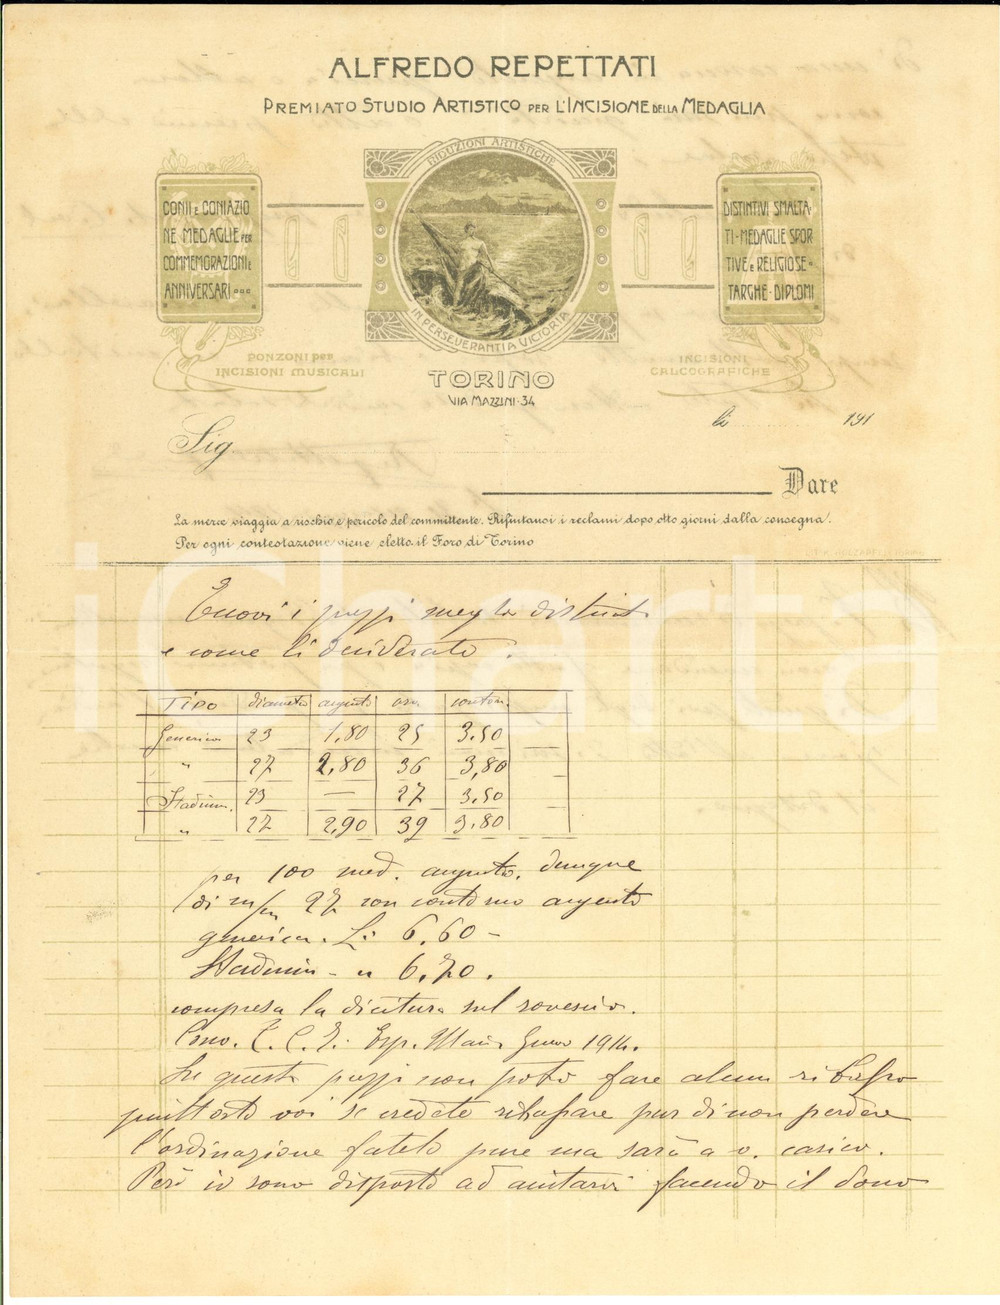 ALFREDO REPETTATI
PREMIATO STUDIO ARTISTICO PER L'INCISIONE DELLA MEDAGLIA
RIDUZIONI ARTISTICHE
IN PERSEVERANTIA VICTORIA
CONII E CONIAZIO
NE MEDAGLIE PER
COMMEMORAZIONI E
ANNIVERSARI
DISTINTIVI SMALTA-
TI-MEDAGLIE SPOR
TIVE E RELIGIOSE-
TARGHE-DIPLOMI
PONZONI PER
INCISIONI MUSICALI
INCISIONI
CALCOGRAFICHE
TORINO
VIA MAZZINI-34
li 191
Sig.
Dare
La merce viaggia a rischio e pericolo del committente. Rifiutansi i reclami dopo otto giorni dalla consegna.
Per ogni contestazione viene eletto il Foro di Torino
iCharta
Eccovi i prezzi meglio distinti
e come li desiderate:
TIPO diametro argento oro contorn.
Generica 23 1,80 25 3,50
" 27 2,80 36 3,80
Stadium 23 — 27 3,50
" 27 2,90 39 3,80
per 100 med. argento. dunque
di m/m 27 con contorno argento
generica. L: 6,60 -
Stadium - " 6,70.
compresa la dicitura sul rovescio.
T. C. I. Esp. 1914.
Su questi prezzi non potei fare alcun ribasso
piuttosto voi se credete ribassare pur di non perdere
l'ordinazione fatelo pure ma sarà a v. carico.
Però io sono disposto ad aiutarvi facendo il dono